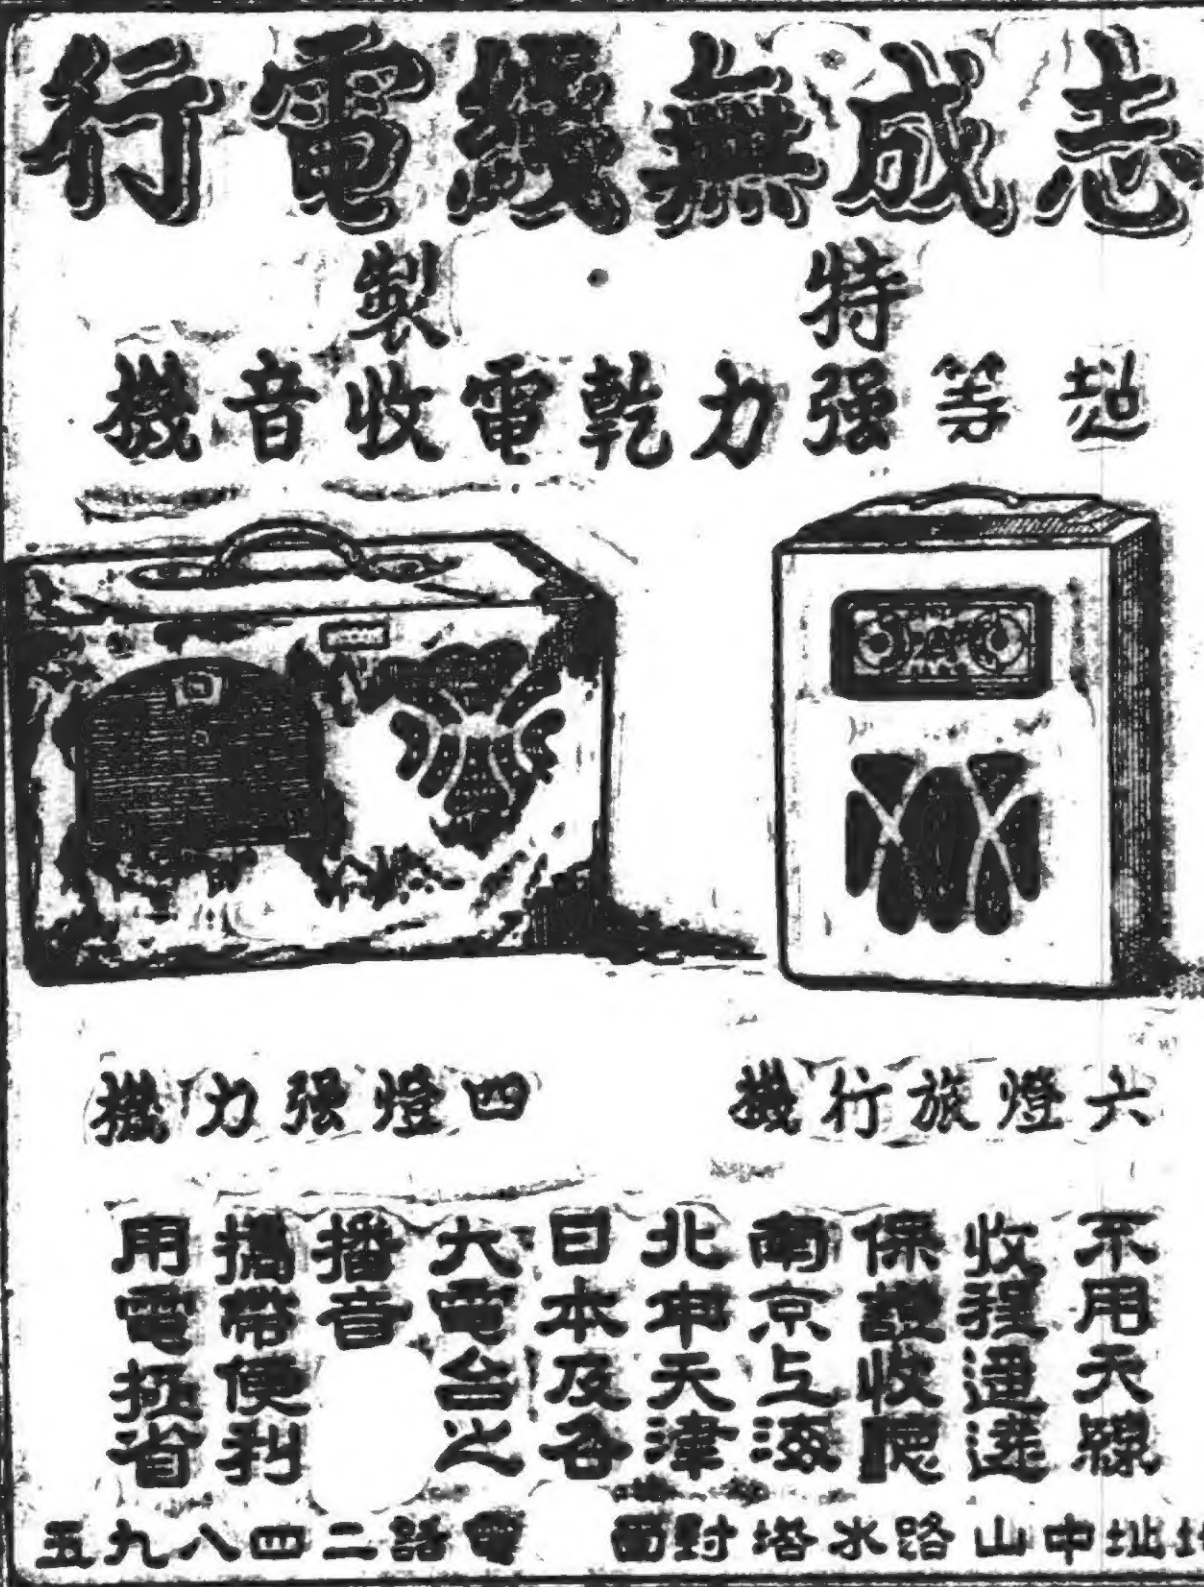 志成無綫電行
特製
超等强力乾電收音機
六燈旅行機
四燈强力機
不用天線
收程遥遠
保證收聽
南京上海
北平天津
日本及各
大電台之
播音
攜帶便利
用電極省
地址中山路水塔對面 電話二四八九五